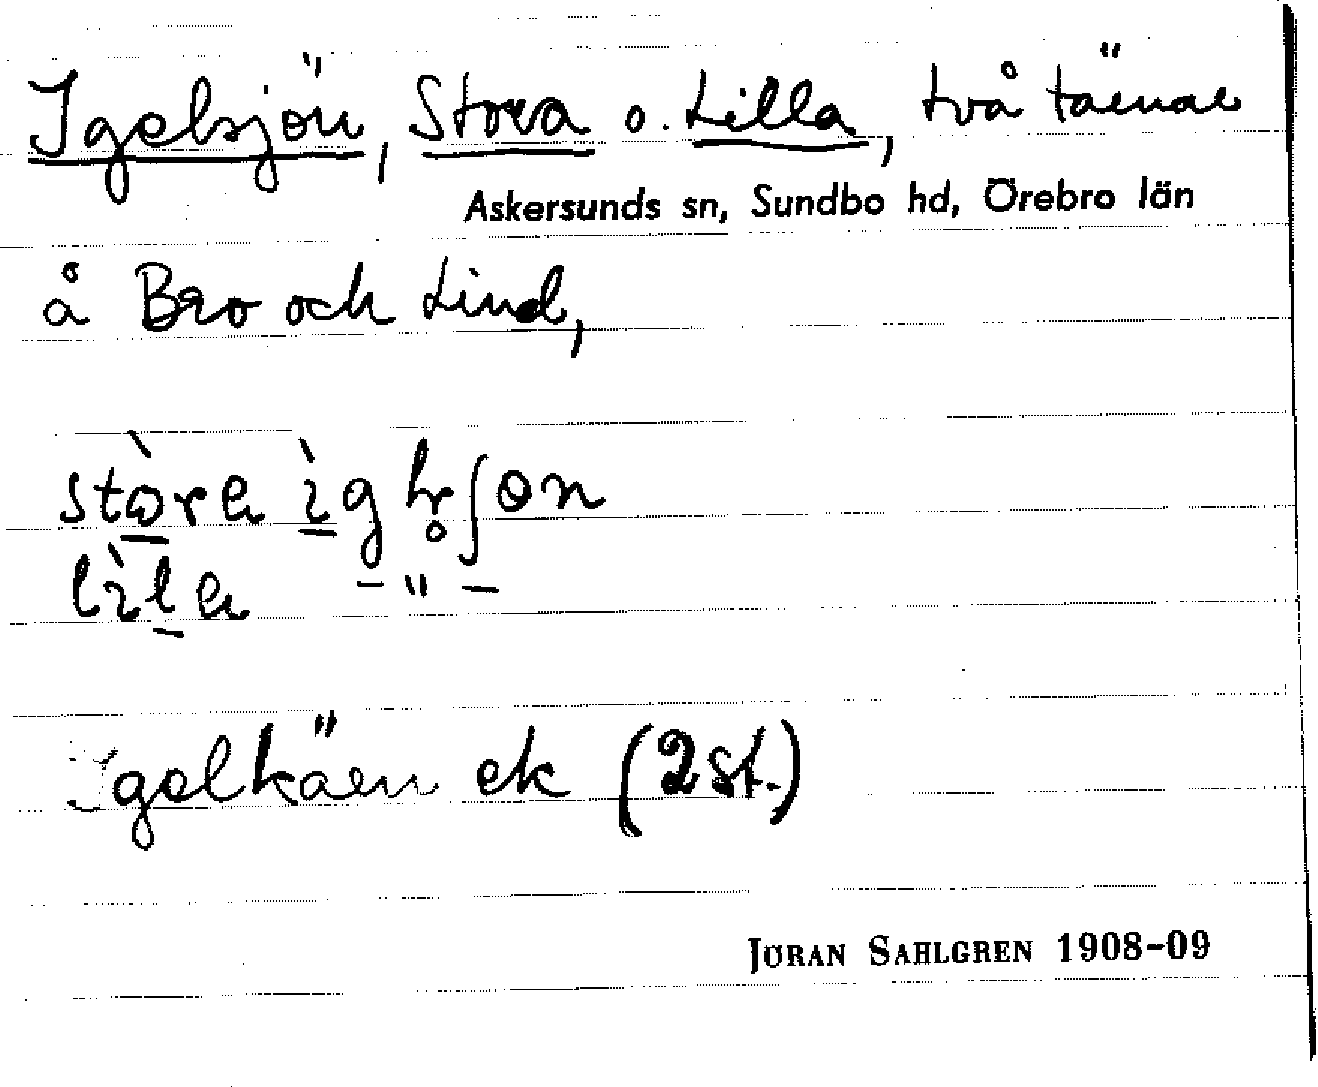 Igelsjön, Stora o. Lilla, två tärnar
Askersunds sn, Sundbo hd, Örebro län
å Bro och Lind,
Igelkärn ek (2 st.)
JÖRAN SAHLGREN 1908-09